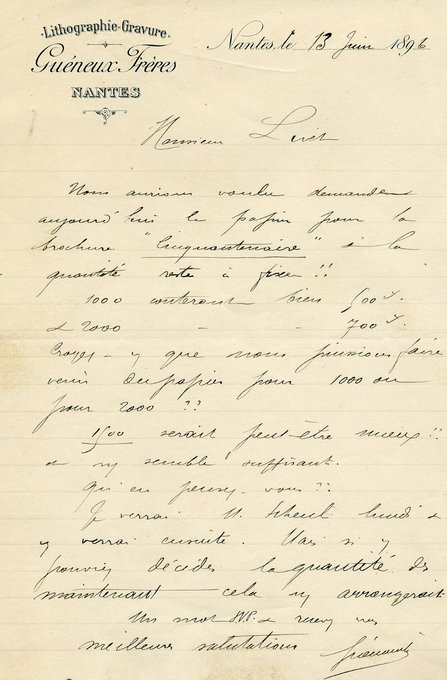 Lithographie-Gravure.
Guéneux Frères
NANTES
Nantes, le 13 Juin 1896
Monsieur Livet
Nous aurions voulu demander
aujourd'hui le papier pour la
brochure "Cinquantenaire" & la
quantité reste à fixer !!
1000 couteront bien 500 f.
& 2000 - - 700 f.
Croyez-vous que nous puissions faire
venir du papier pour 1000 ou
pour 2000 ??
1500 serait peut-être mieux !!
& me semble suffisant.
Qu'en pensez-vous ??
Je verrai M. lundi &
verrai ensuite. Mais si je
pouvais décider la quantité dès
maintenant cela m'arrangerait
Un mot SVP & recevez mes
meilleures salutations